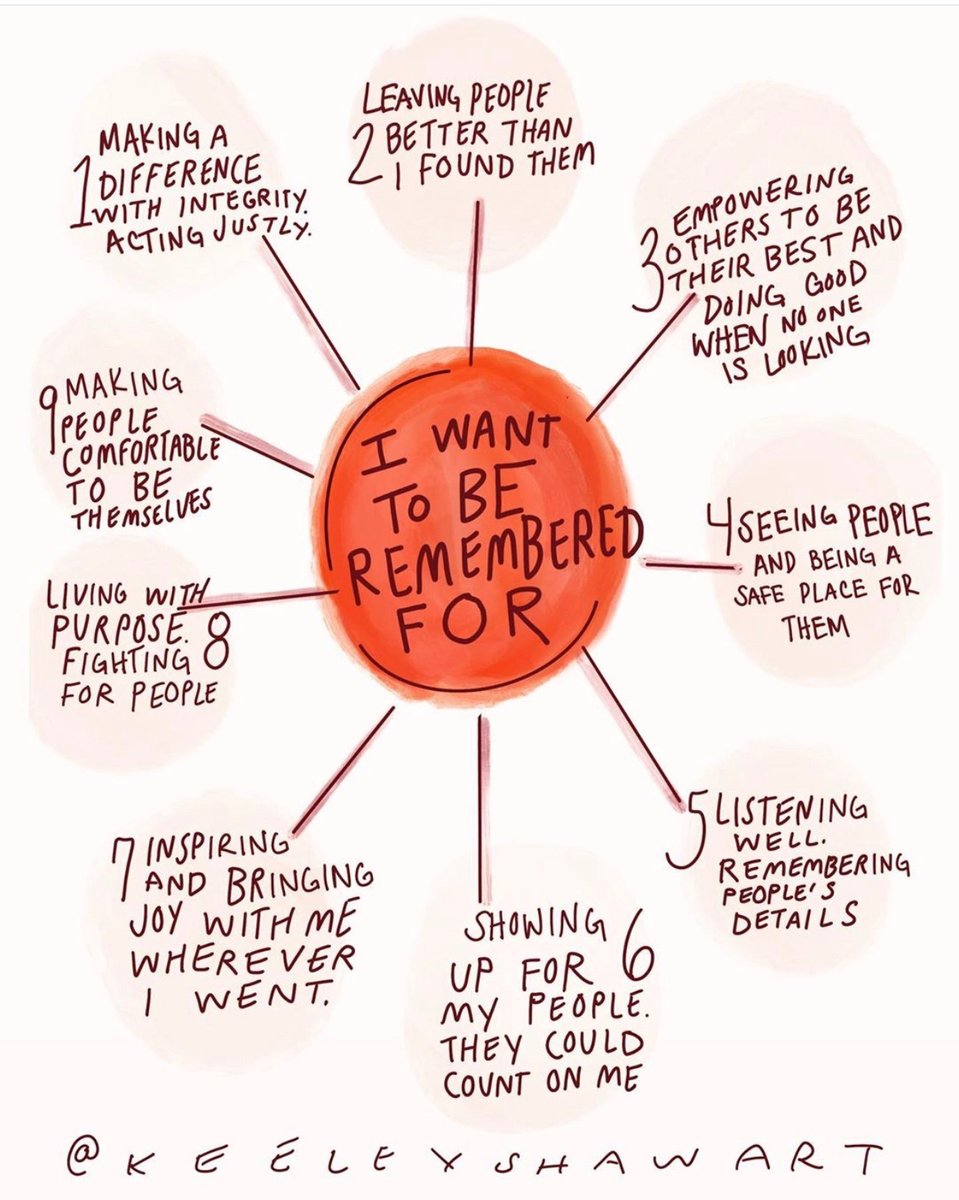 I WANT
TO BE
REMEMBERED
FOR
1 MAKING A
DIFFERENCE
WITH INTEGRITY.
ACTING JUSTLY.
2 LEAVING PEOPLE
BETTER THAN
I FOUND THEM
3 EMPOWERING
OTHERS TO BE
THEIR BEST AND
DOING GOOD
WHEN NO ONE
IS LOOKING
4 SEEING PEOPLE
AND BEING A
SAFE PLACE FOR
THEM
5 LISTENING
WELL.
REMEMBERING
PEOPLE'S
DETAILS
SHOWING
UP FOR 6
MY PEOPLE.
THEY COULD
COUNT ON ME
7 INSPIRING
AND BRINGING
JOY WITH ME
WHEREVER
I WENT.
LIVING WITH
PURPOSE. 8
FIGHTING
FOR PEOPLE
9 MAKING
PEOPLE
COMFORTABLE
TO BE
THEMSELVES
@KEELEYSHAWART